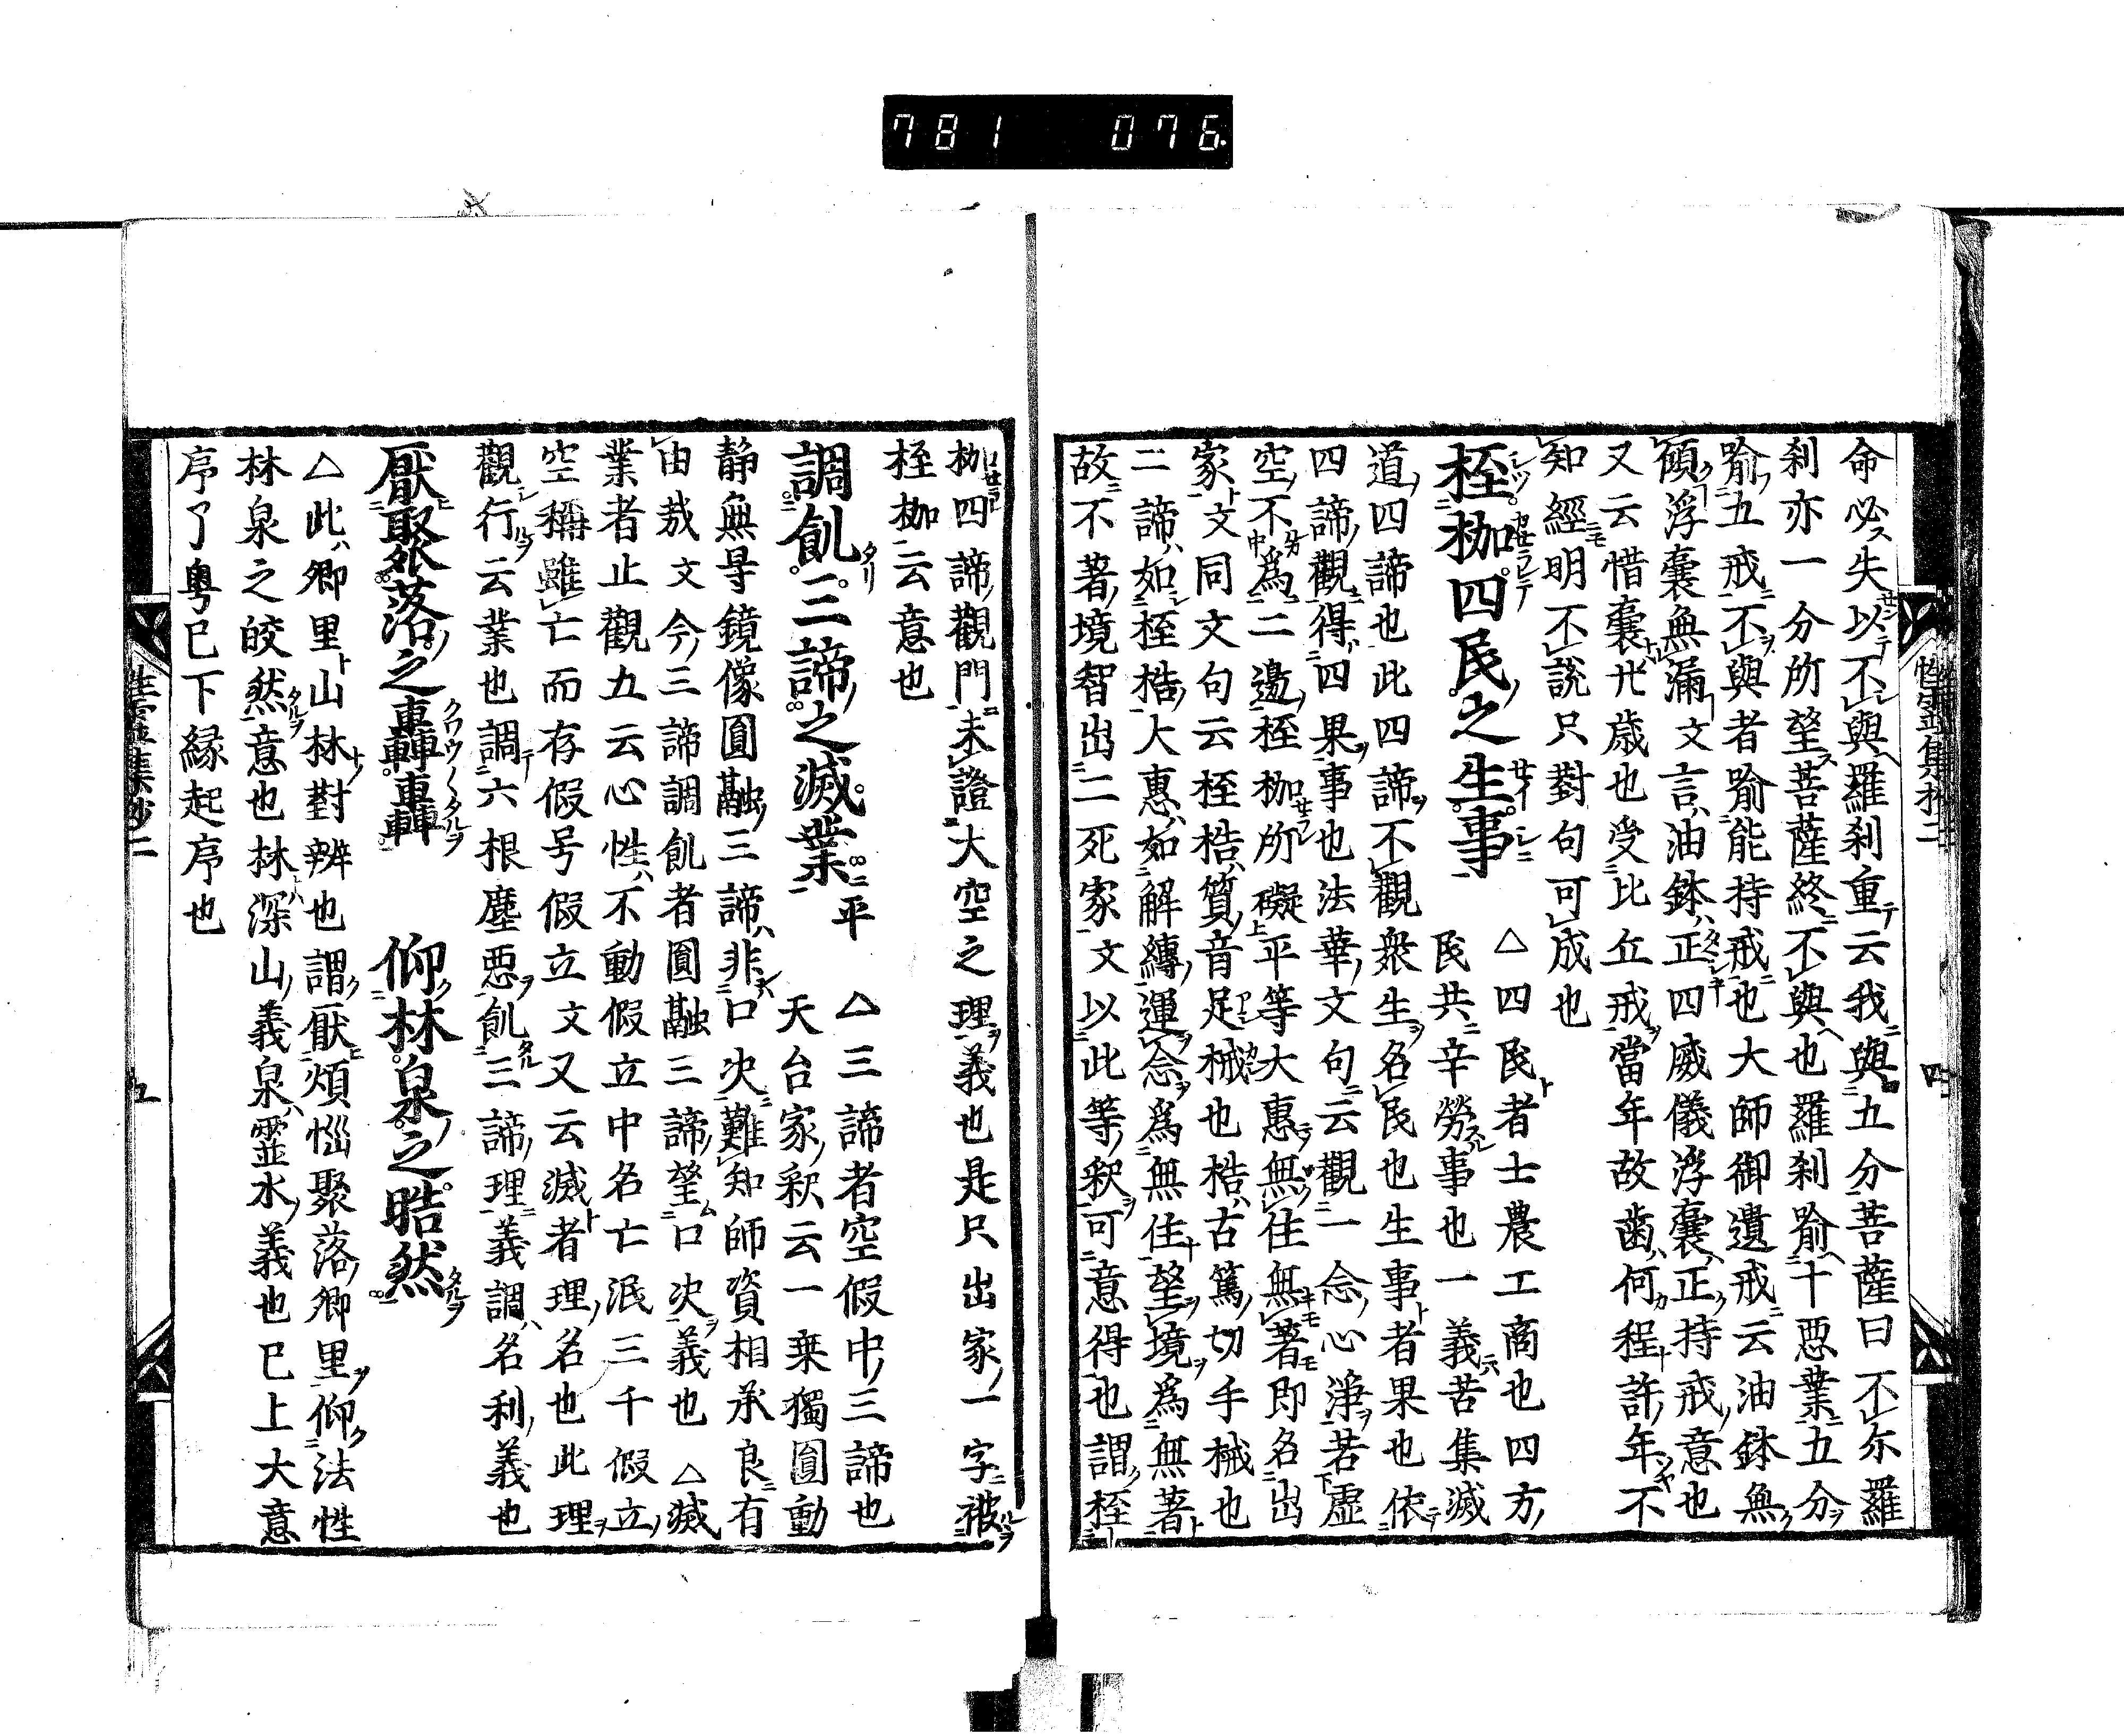 781 076
性霊集抄二 四
命必失以不與羅刹重云我與五分菩薩曰不尓羅
刹亦一分所望菩薩終不與也羅刹喻十悪業五分
喻五戒不與者喻能持戒也大師御遺戒云油鉢無
傾浮囊無漏文言油鉢正四威儀浮囊正持戒意也
又云惜囊卅歳也受比丘戒當年故歯何程許年不
知經明不說只對句可成也
桎枷四民之生事 △四民者士農工商也四方
民共辛勞事也一義苦集滅
道四諦也此四諦不觀衆生名民也生事者果也依
四諦觀得四果事也法華文句云觀一念心淨若虛
空不為二邊桎枷所礙平等大惠無住無著即名出
家文同文句云桎梏質音足械也梏古篤切手械也
二諦如桎梏大惠如解縛運念為無住望境為無著
故不著境智出二死家文以此等釈可意得也謂桎
枷四諦觀門未證大空之理義也是只出家一字被
桎枷云意也
調飢三諦之滅業平 △三諦者空假中三諦也
天台家釈云一乗獨圓動
静無㝵鏡像圓融三諦非口决難知師資相承良有
由哉文今三諦調飢者圓融三諦望口决義也 △滅
業者止觀五云心性不動假立中名亡泯三千假立
空稱雖亡而存假号假立文又云滅者理名也此理
觀行云業也調六根塵悪飢三諦理義調名利義也
厭聚落之轟轟 仰林泉之皓然
△此郷里山林對辨也謂厭煩惱聚落郷里仰法性
林泉之皎然意也林深山義泉霊水義也已上大意
序了粤已下縁起序也
性霊集抄二 五